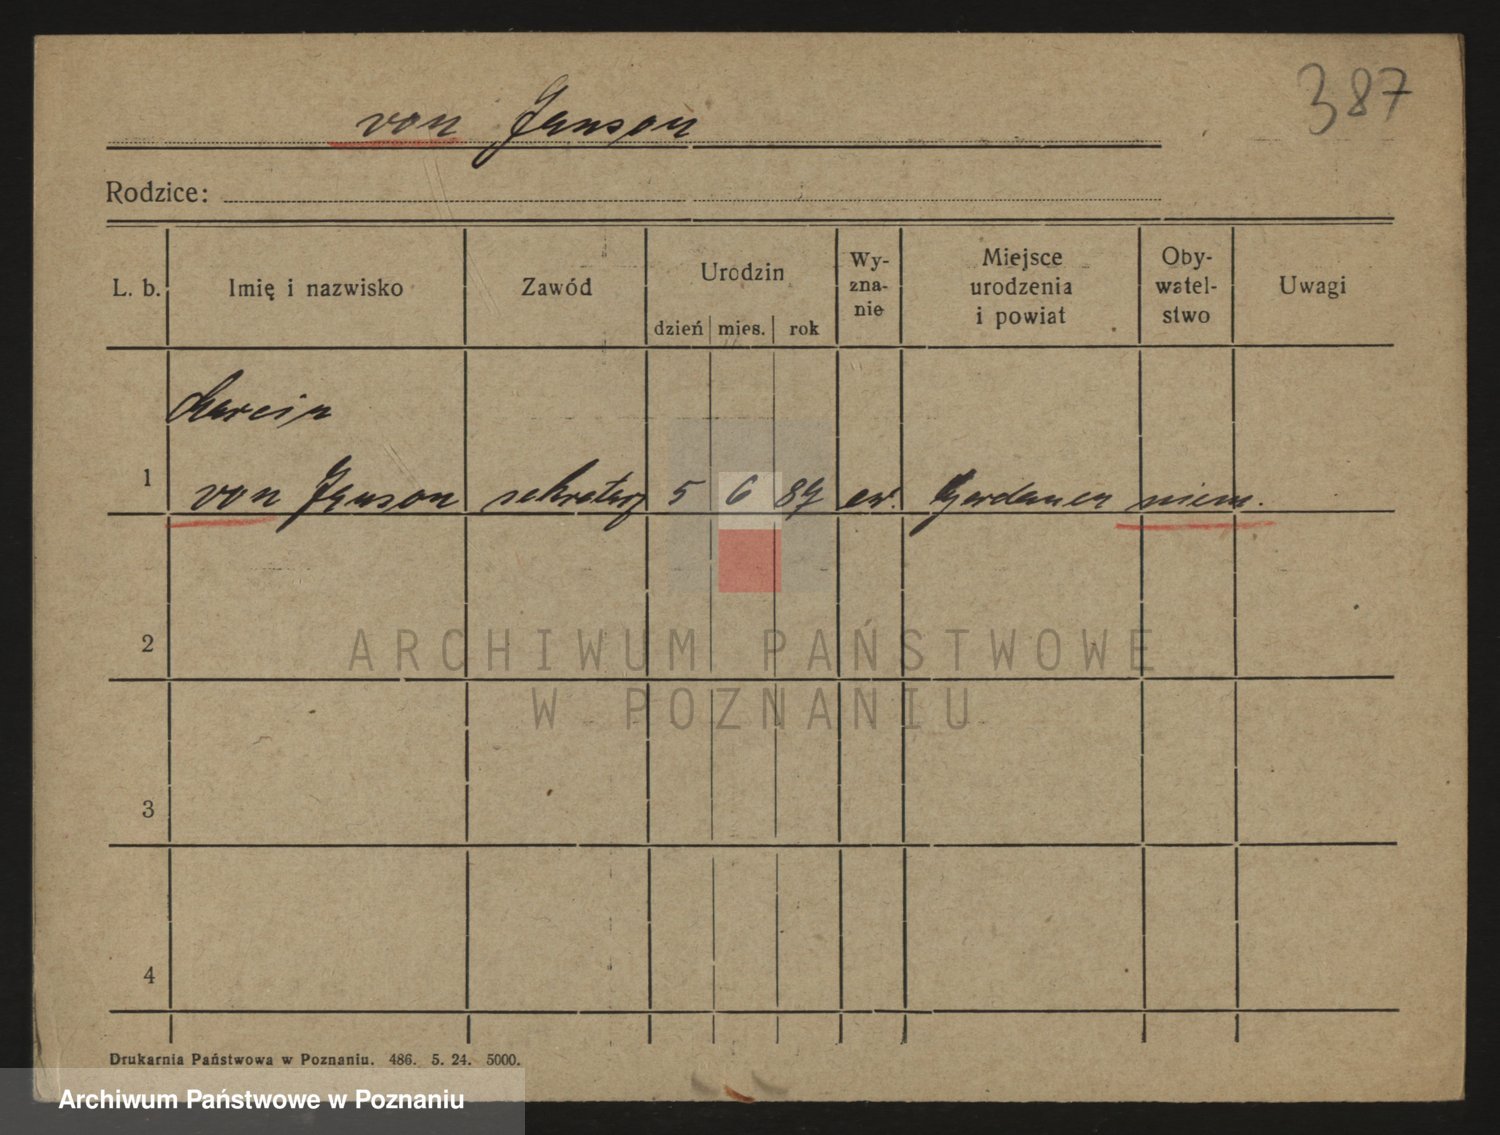 387
von Janson
Rodzice:
L. b. Imię i nazwisko Zawód Urodzin dzień mies. rok Wy-zna-nie Miejsce urodzenia i powiat Oby-watel-stwo Uwagi
Marcin
1 von Janson sekretarz 5 6 87 ew. Gerdauen niem.
2
3
4
ARCHIWUM PAŃSTWOWE
W POZNANIU
Drukarnia Państwowa w Poznaniu. 486. 5. 24. 5000.
Archiwum Państwowe w Poznaniu